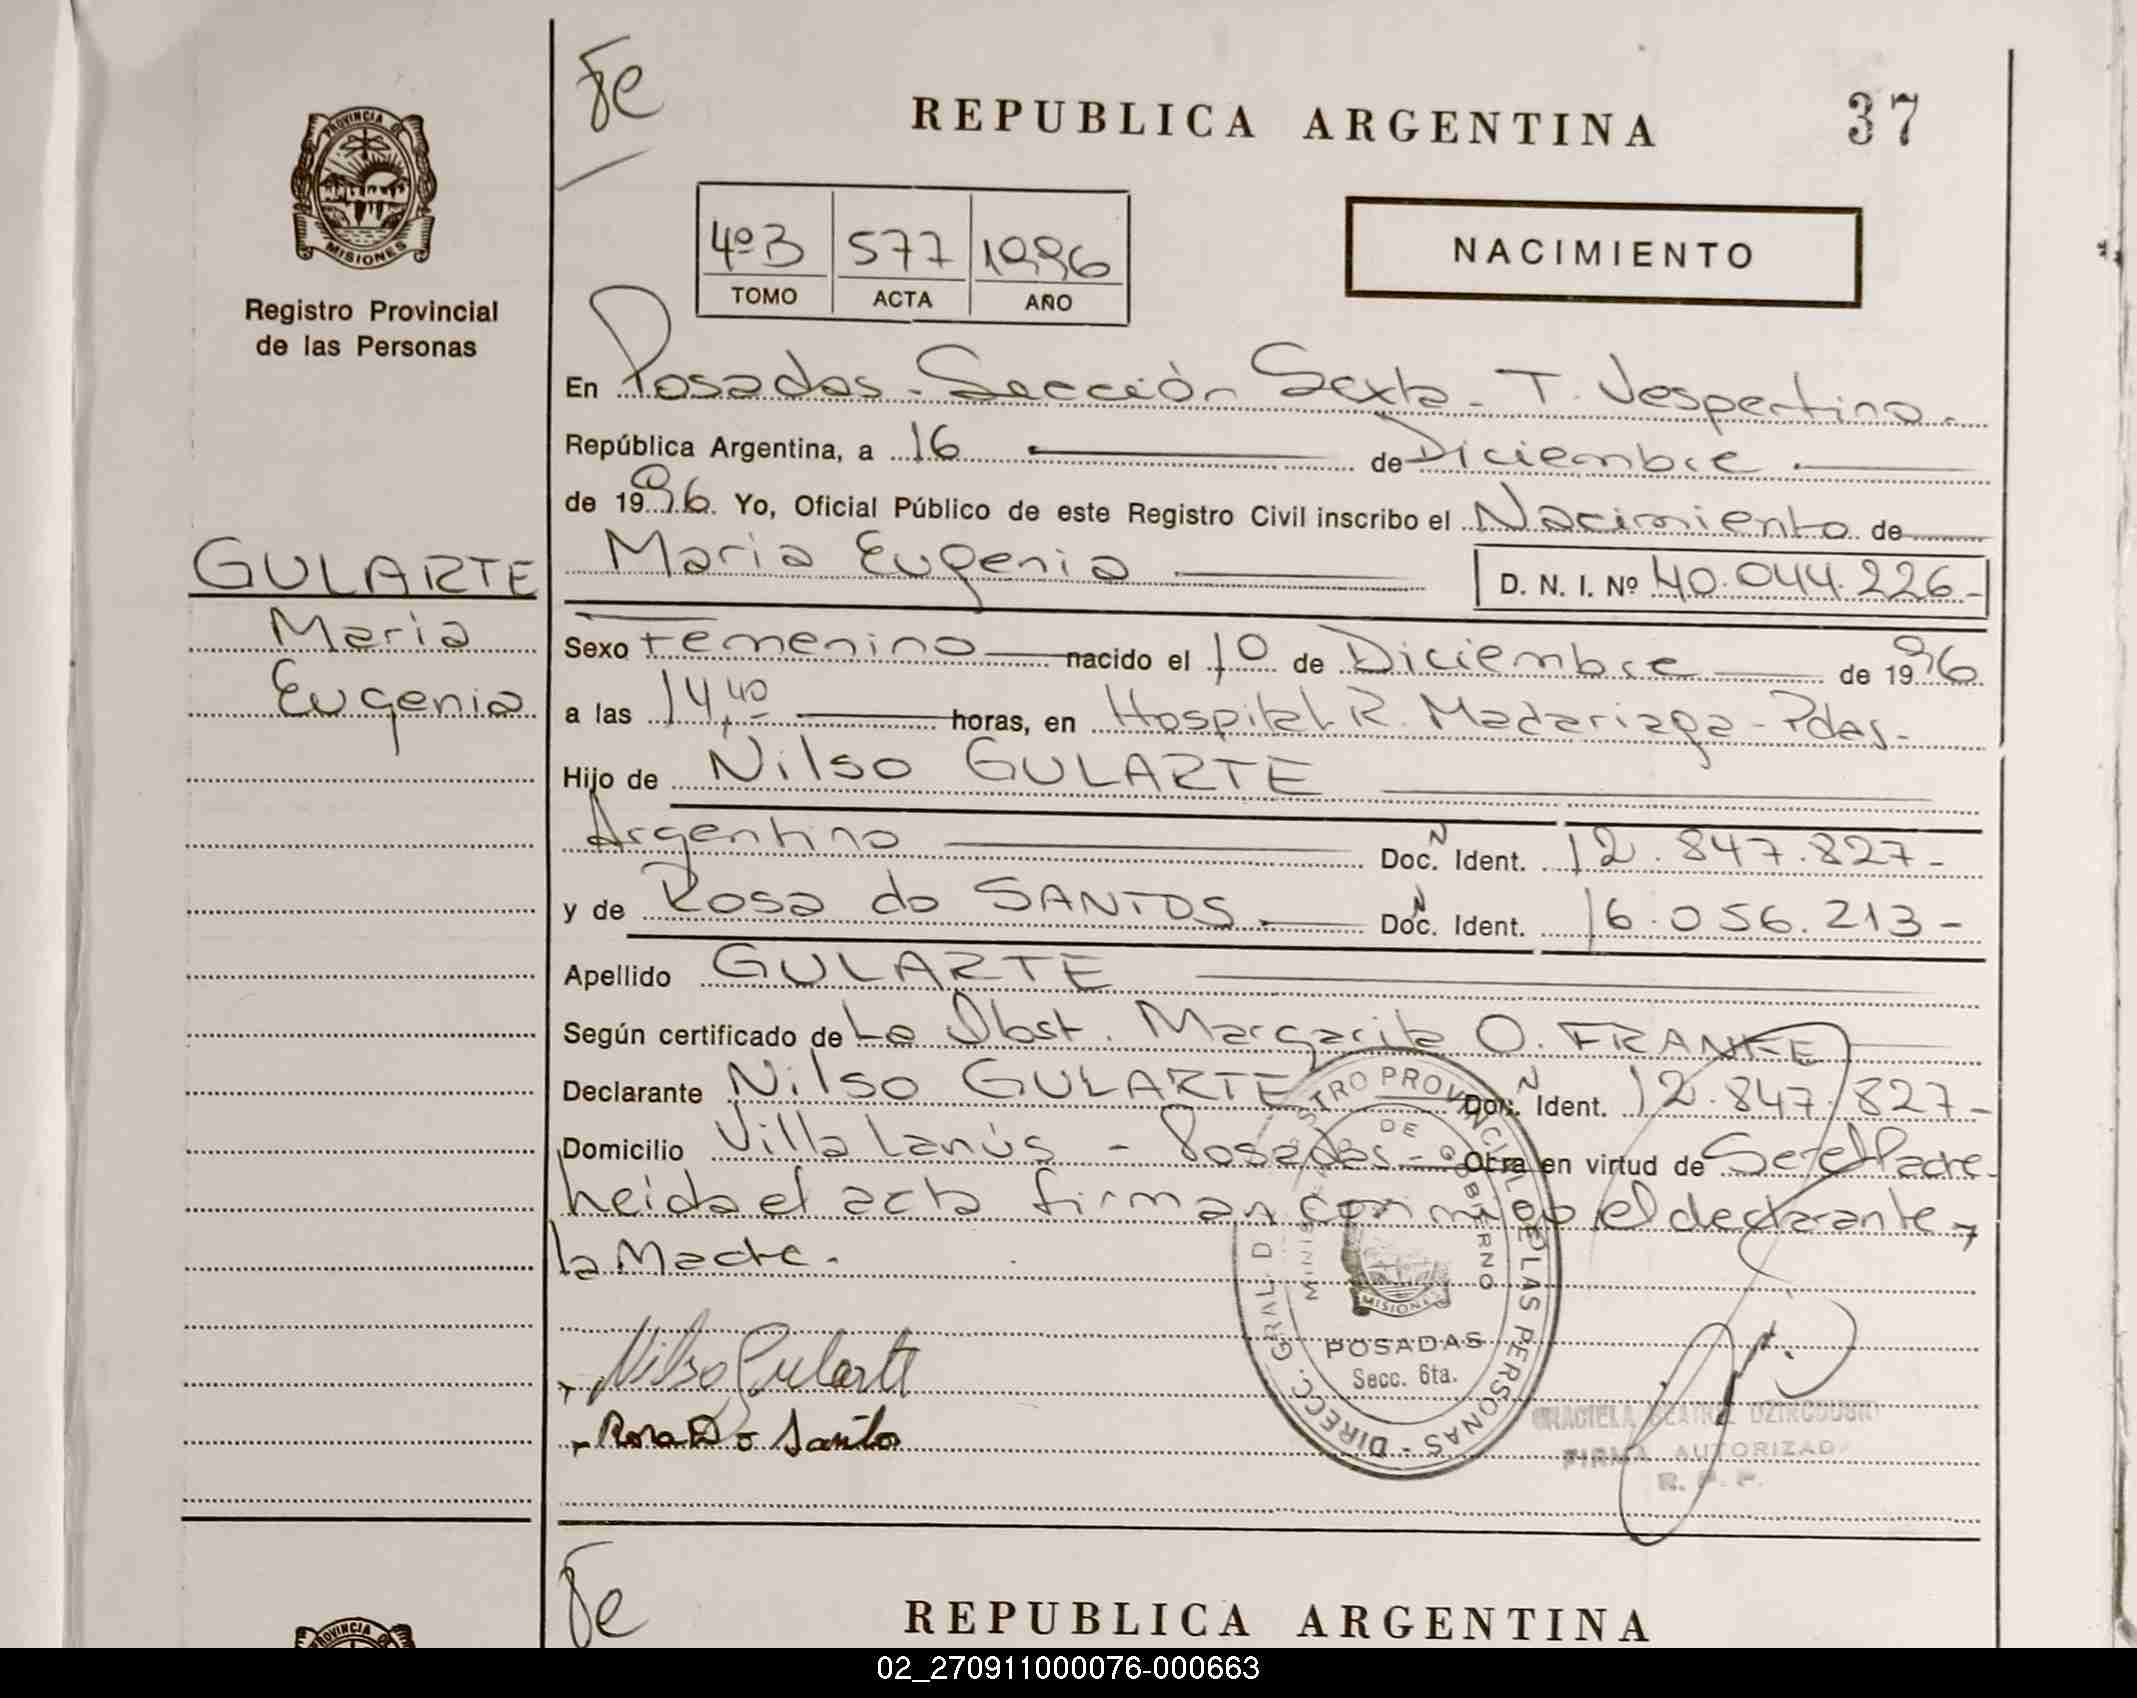 Fe
REPUBLICA ARGENTINA
37
PROVINCIA DE
MISIONES
Registro Provincial
de las Personas
4ºB 577 1996
TOMO ACTA AÑO
NACIMIENTO
En Posadas - Sección Sexta - T. Vespertino -
República Argentina, a 16 de Diciembre
de 1996. Yo, Oficial Público de este Registro Civil inscribo el Nacimiento de
GULARTE
Maria
Eugenia
Maria Eugenia
D. N. I. Nº 40.044.226-
Sexo Femenino nacido el 10 de Diciembre de 1996
a las 14,40 horas, en Hospital R. Madariaga - Pdas-
Hijo de Nilso GULARTE
Argentino Doc. N Ident. 12.847.827-
y de Rosa do SANTOS Doc. N Ident. 16.056.213-
Apellido GULARTE
Según certificado de La Obst. Margarita O. FRANKE
Declarante Nilso GULARTE Doc. N Ident. 12.847.827-
Domicilio Villa Lanús - Posadas - Obra en virtud de Ser el Padre-
Leida el acta firman conmigo el declarante y
la Madre.
Nilso Gularte
Rosa Do Santo
DIRECC. GRAL. DE REGISTRO PROVINCIAL DE LAS PERSONAS -
MINISTERIO DE GOBIERNO
MISIONES
POSADAS
Secc. 6ta.
GRACIELA BEATRIZ
FIRMA AUTORIZADA
R. P. P.
Fe
REPUBLICA ARGENTINA
PROVINCIA DE
02_270911000076-000663